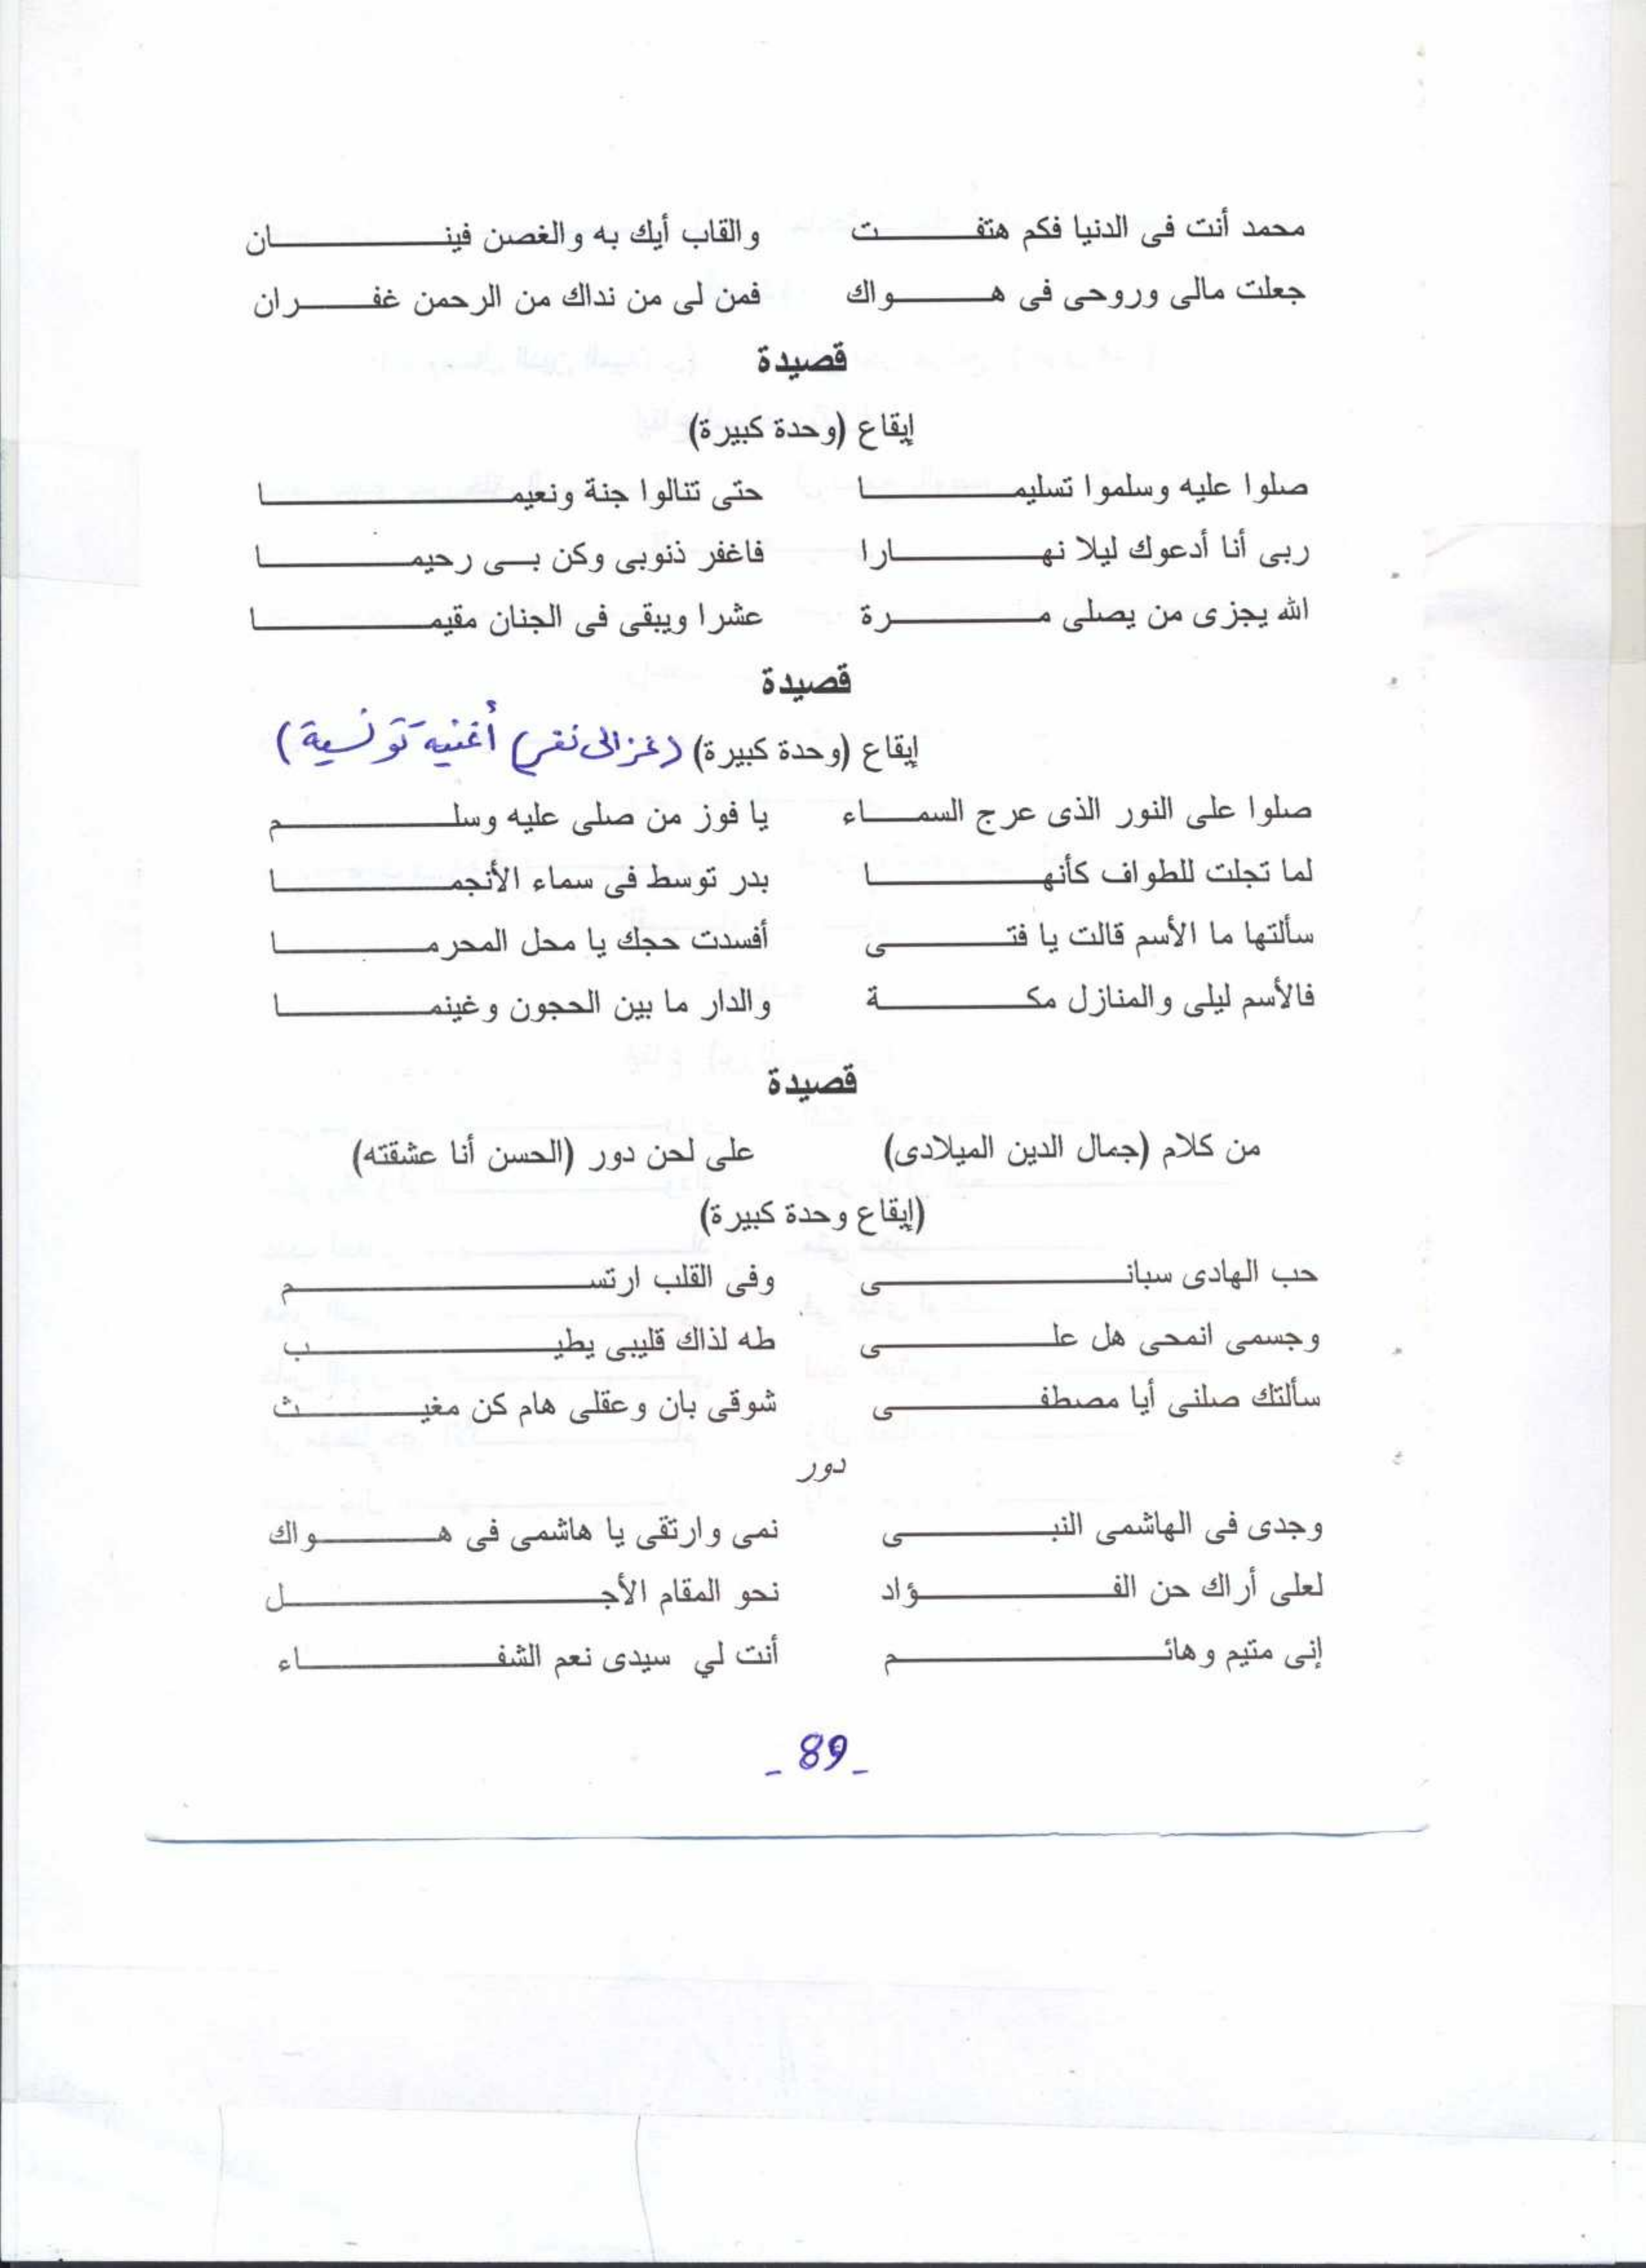 محمد أنت فى الدنيا فكم هتفت والقاب أيك به والغصن فينان
جعلت مالى وروحى فى هواك فمن لى من نداك من الرحمن غفران
قصيدة
إيقاع (وحدة كبيرة)
صلوا عليه وسلموا تسليما حتى تنالوا جنة ونعيما
ربى أنا أدعوك ليلا نهارا فاغفر ذنوبى وكن بى رحيما
الله يجزى من يصلى مرة عشرا ويبقى فى الجنان مقيما
قصيدة
إيقاع (وحدة كبيرة) (غزالى نفر) أغنية تونسية)
صلوا على النور الذى عرج السماء يا فوز من صلى عليه وسلم
لما تجلت للطواف كأنها بدر توسط فى سماء الأنجما
سألتها ما الأسم قالت يا فتى أفسدت حجك يا محل المحرما
فالأسم ليلى والمنازل مكة والدار ما بين الحجون وغينما
قصيدة
من كلام (جمال الدين الميلادى) على لحن دور (الحسن أنا عشقته)
(إيقاع وحدة كبيرة)
حب الهادى سبانى وفى القلب ارتسم
وجسمى انمحى هل على طه لذاك قليبى يطيب
سألتك صلنى أيا مصطفى شوقى بان وعقلى هام كن مغيث
دور
وجدى فى الهاشمى النبى نمى وارتقى يا هاشمى فى هواك
لعلى أراك حن الفؤاد نحو المقام الأجل
إنى متيم وهائم أنت لي سيدى نعم الشفاء
- 89 -